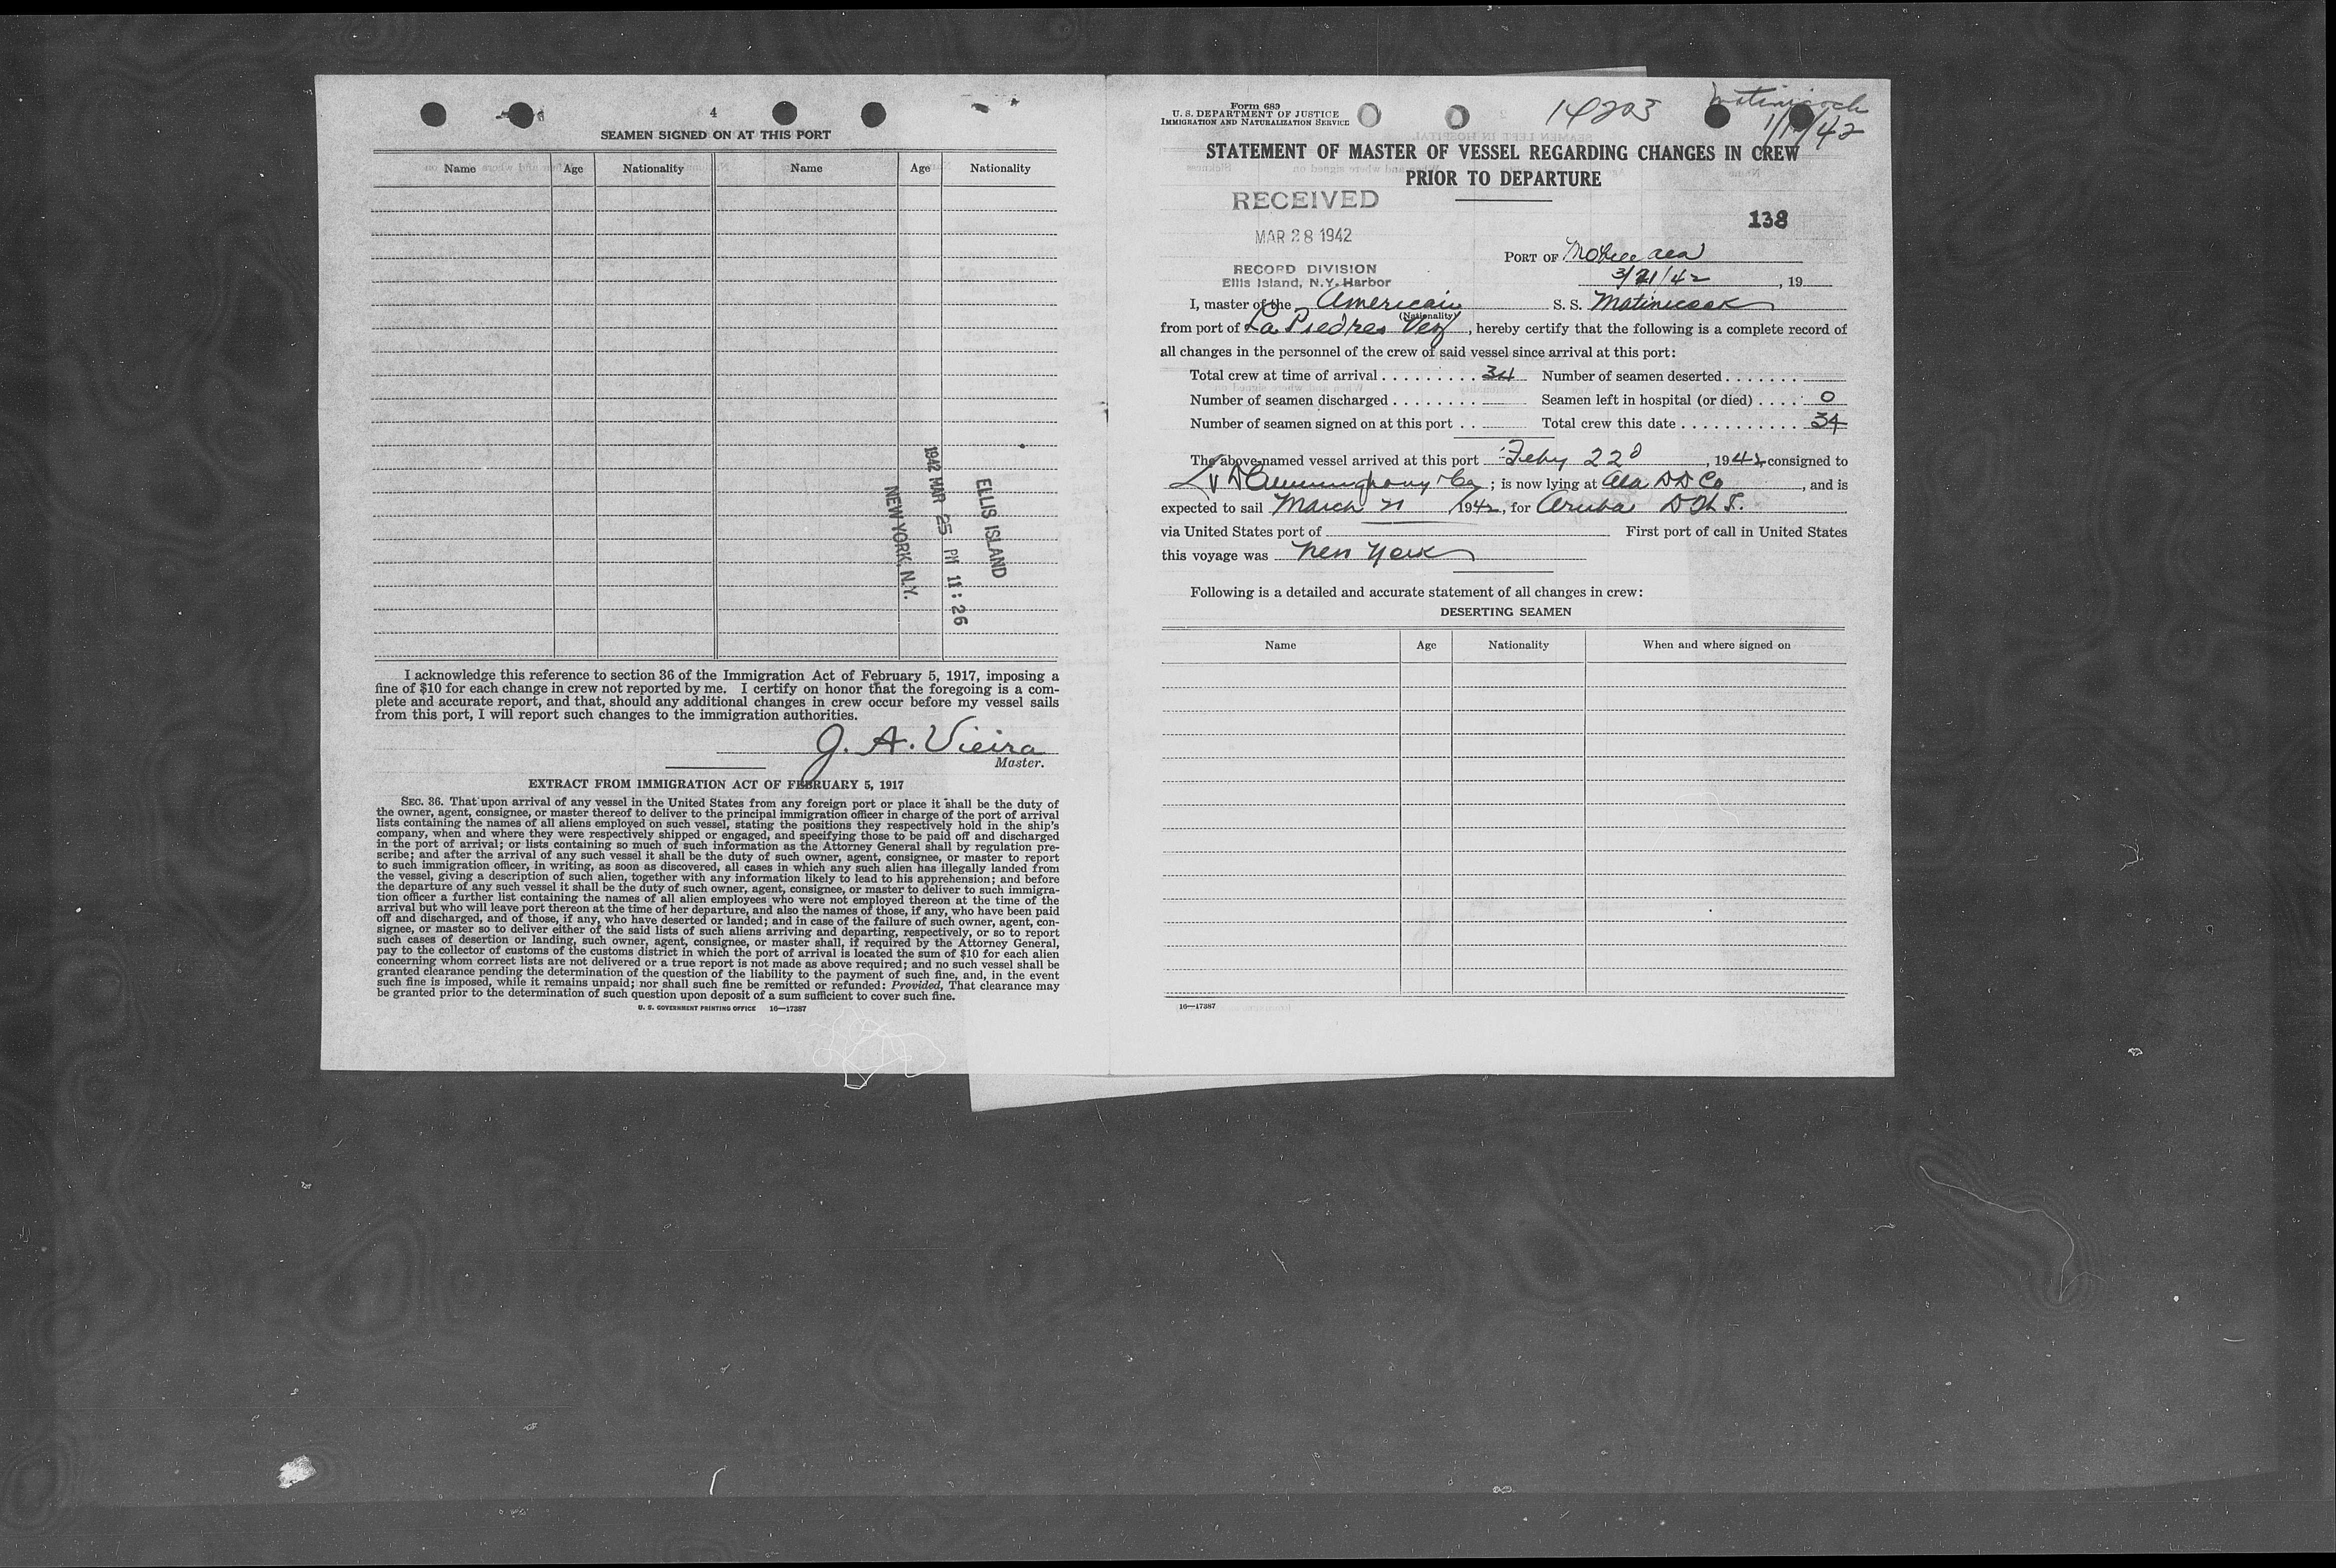 4
SEAMEN SIGNED ON AT THIS PORT
Name Age Nationality Name Age Nationality
ELLIS ISLAND
1942 MAR 25 PM 11:26
NEW YORK, N.Y.
I acknowledge this reference to section 36 of the Immigration Act of February 5, 1917, imposing a
fine of $10 for each change in crew not reported by me. I certify on honor that the foregoing is a com-
plete and accurate report, and that, should any additional changes in crew occur before my vessel sails
from this port, I will report such changes to the immigration authorities.
J. A. Vieira
Master.
EXTRACT FROM IMMIGRATION ACT OF FEBRUARY 5, 1917
SEC. 36. That upon arrival of any vessel in the United States from any foreign port or place it shall be the duty of
the owner, agent, consignee, or master thereof to deliver to the principal immigration officer in charge of the port of arrival
lists containing the names of all aliens employed on such vessel, stating the positions they respectively hold in the ship's
company, when and where they were respectively shipped or engaged, and specifying those to be paid off and discharged
in the port of arrival; or lists containing so much of such information as the Attorney General shall by regulation pre-
scribe; and after the arrival of any such vessel it shall be the duty of such owner, agent, consignee, or master to report
to such immigration officer, in writing, as soon as discovered, all cases in which any such alien has illegally landed from
the vessel, giving a description of such alien, together with any information likely to lead to his apprehension; and before
the departure of any such vessel it shall be the duty of such owner, agent, consignee, or master to deliver to such immigra-
tion officer a further list containing the names of all alien employees who were not employed thereon at the time of the
arrival but who will leave port thereon at the time of her departure, and also the names of those, if any, who have been paid
off and discharged, and of those, if any, who have deserted or landed; and in case of the failure of such owner, agent, con-
signee, or master so to deliver either of the said lists of such aliens arriving and departing, respectively, or so to report
such cases of desertion or landing, such owner, agent, consignee, or master shall, if required by the Attorney General,
pay to the collector of customs of the customs district in which the port of arrival is located the sum of $10 for each alien
concerning whom correct lists are not delivered or a true report is not made as above required; and no such vessel shall be
granted clearance pending the determination of the question of the liability to the payment of such fine, and, in the event
such fine is imposed, while it remains unpaid; nor shall such fine be remitted or refunded: Provided, That clearance may
be granted prior to the determination of such question upon deposit of a sum sufficient to cover such fine.
U. S. GOVERNMENT PRINTING OFFICE 16—17387
Form 689
U. S. DEPARTMENT OF JUSTICE
IMMIGRATION AND NATURALIZATION SERVICE
14203
STATEMENT OF MASTER OF VESSEL REGARDING CHANGES IN CREW
PRIOR TO DEPARTURE
RECEIVED
MAR 28 1942
RECORD DIVISION
Ellis Island, N.Y. Harbor
138
PORT OF Mobile Ala
3/21/42, 19
I, master of the American S. S. Matinicock
(Nationality)
from port of La Piedres Vez, hereby certify that the following is a complete record of
all changes in the personnel of the crew of said vessel since arrival at this port:
Total crew at time of arrival 34 Number of seamen deserted
Number of seamen discharged Seamen left in hospital (or died) 0
Number of seamen signed on at this port Total crew this date 34
The above-named vessel arrived at this port Feby 22d, 1942, consigned to
Co; is now lying at Ala DD Co, and is
expected to sail March 21 1942, for Aruba
via United States port of First port of call in United States
this voyage was New York
Following is a detailed and accurate statement of all changes in crew:
DESERTING SEAMEN
Name Age Nationality When and where signed on
16—17387